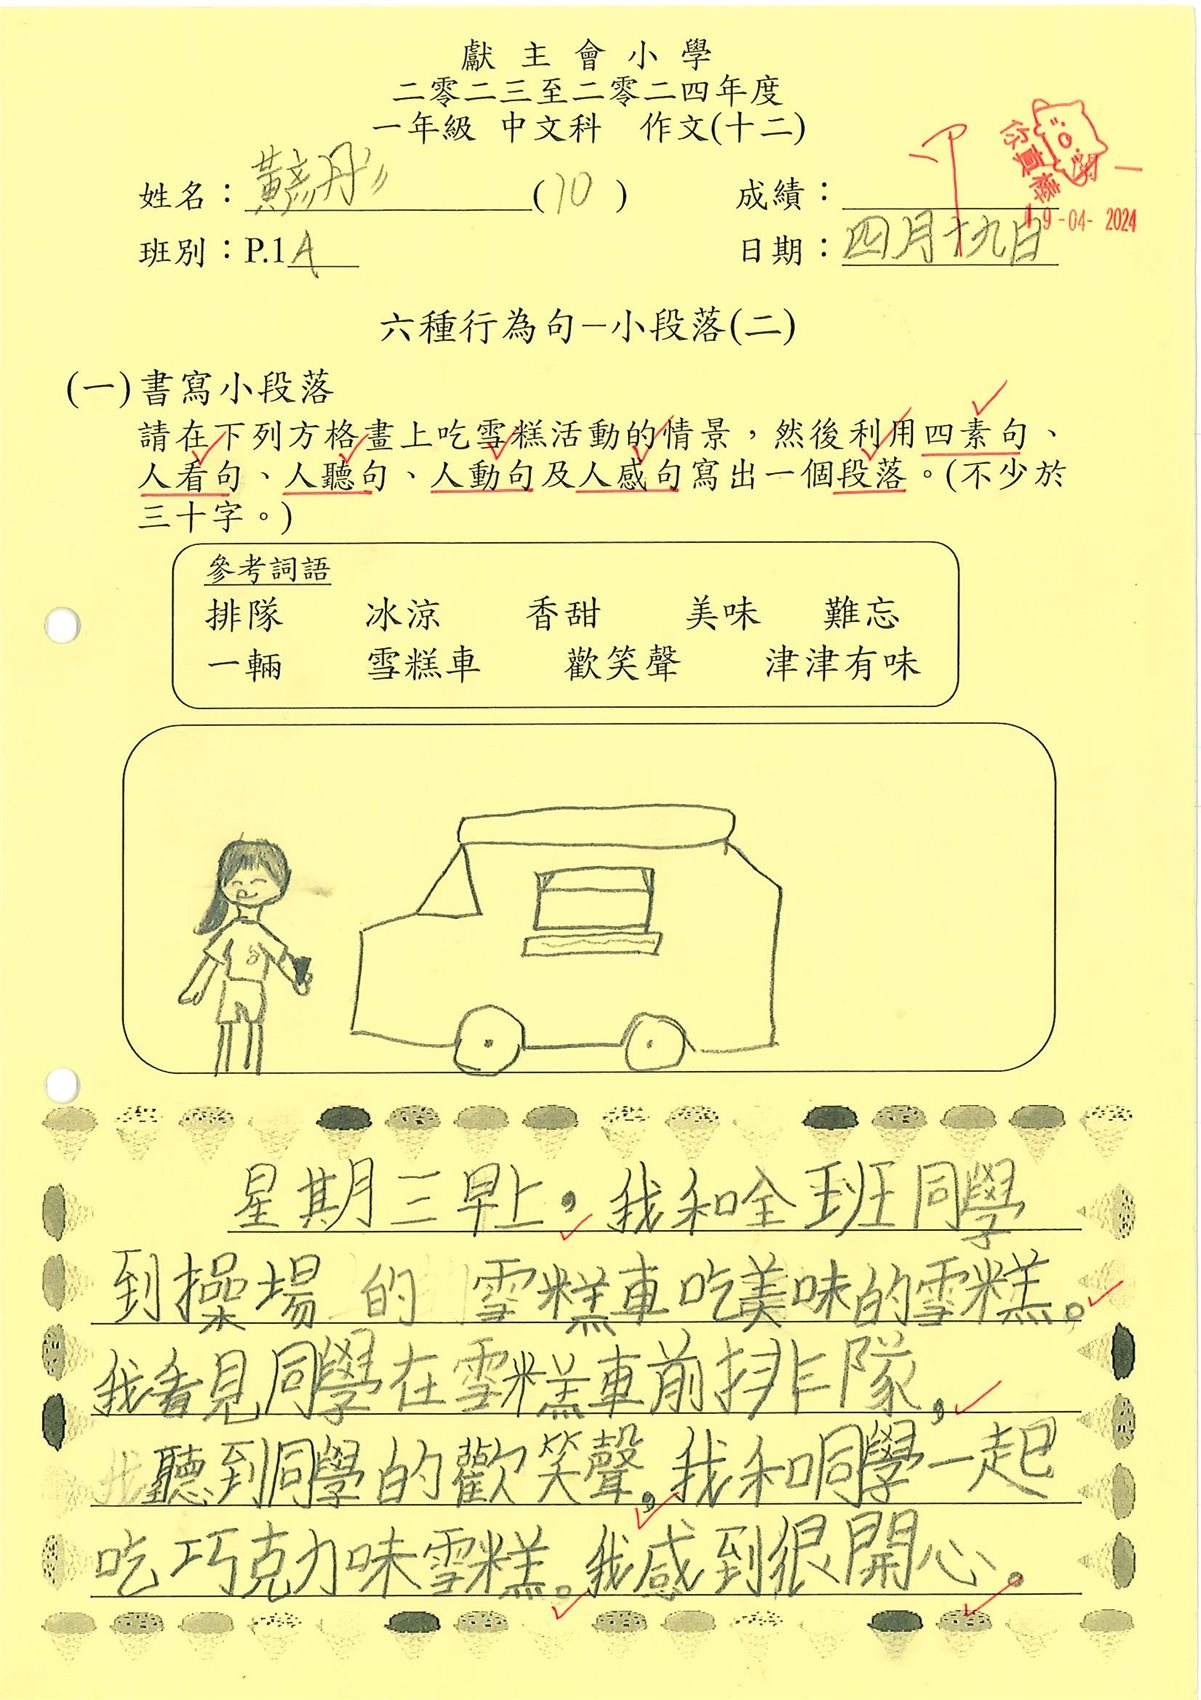 獻主會小學
二零二三至二零二四年度
一年級 中文科 作文(十二)
姓名：黃彥彤 (10) 成績：甲
你真棒
19-04-2024
班別：P.1A 日期：四月十九日
六種行為句－小段落(二)
(一)書寫小段落
請在下列方格畫上吃雪糕活動的情景，然後利用四素句、
人看句、人聽句、人動句及人感句寫出一個段落。(不少於
三十字。)
參考詞語
排隊 冰涼 香甜 美味 難忘
一輛 雪糕車 歡笑聲 津津有味
星期三早上，我和全班同學
到操場的雪糕車吃美味的雪糕。
我看見同學在雪糕車前排隊，
聽到同學的歡笑聲，我和同學一起
吃巧克力味雪糕。我感到很開心。